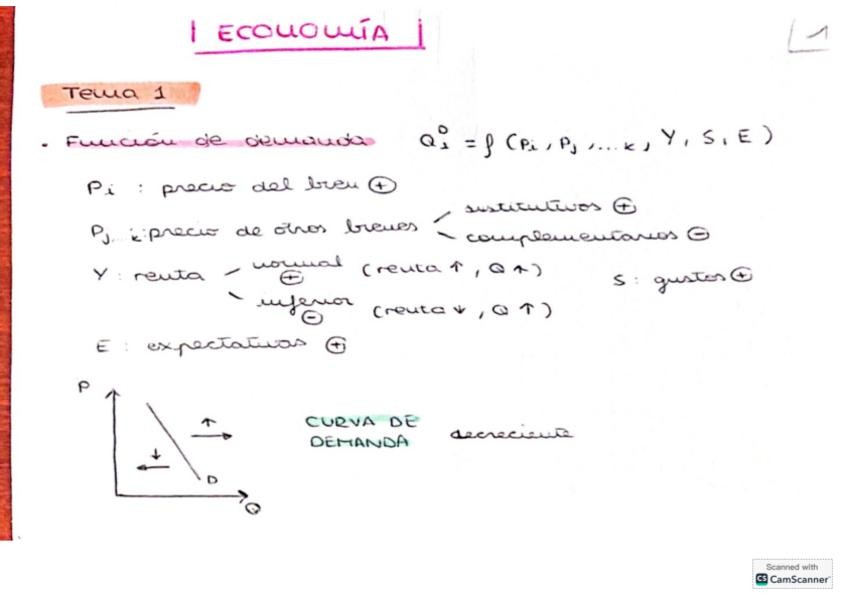 ¡ ECONOMÍA !
1
Tema 1
• Función de demanda Qᵢᴰ = f (Pi, Pj, ... k, Y, S, E)
Pi : precio del bien ⊕
Pj, k: precio de otros bienes
sustitutivos ⊕
complementarios ⊖
Y : renta
normal ⊕ (renta ↑, Q ↑)
inferior ⊖ (renta ↓, Q ↑)
S : gustos ⊕
E : expectativas ⊕
P
↑
↓
D
Q
CURVA DE
DEMANDA decreciente
Scanned with
CS CamScanner